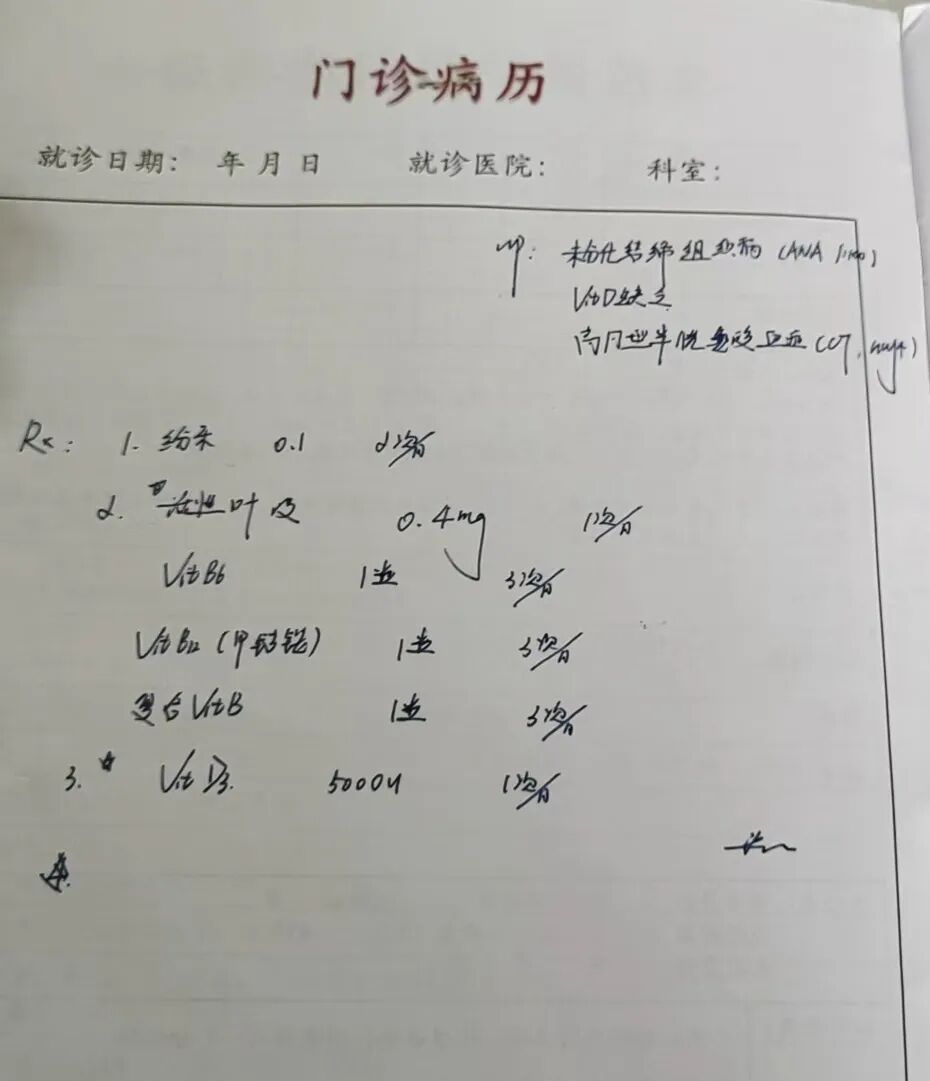 门诊病历
就诊日期: 年 月 日 就诊医院: 科室:
未分化结缔组织病 (ANA
VitD缺乏
高同型半胱氨酸血症 (
Rx: 1. 纷乐 0.1 2次/日
2. 活性叶酸 0.4mg 1次/日
VitB6 1粒 3次/日
VitB12 (甲钴铵) 1粒 3次/日
复合VitB 1粒 3次/日
3. * VitD3. 5000u 1次/日